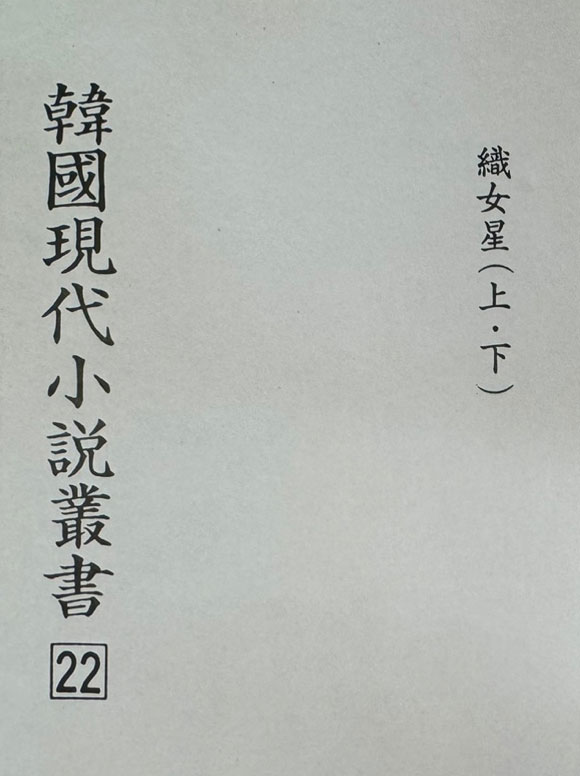 織女星(上·下)
韓國現代小説叢書
22